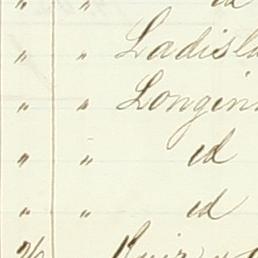 " " id
" " Ladisla
" " Longin
" " id
" " id
26